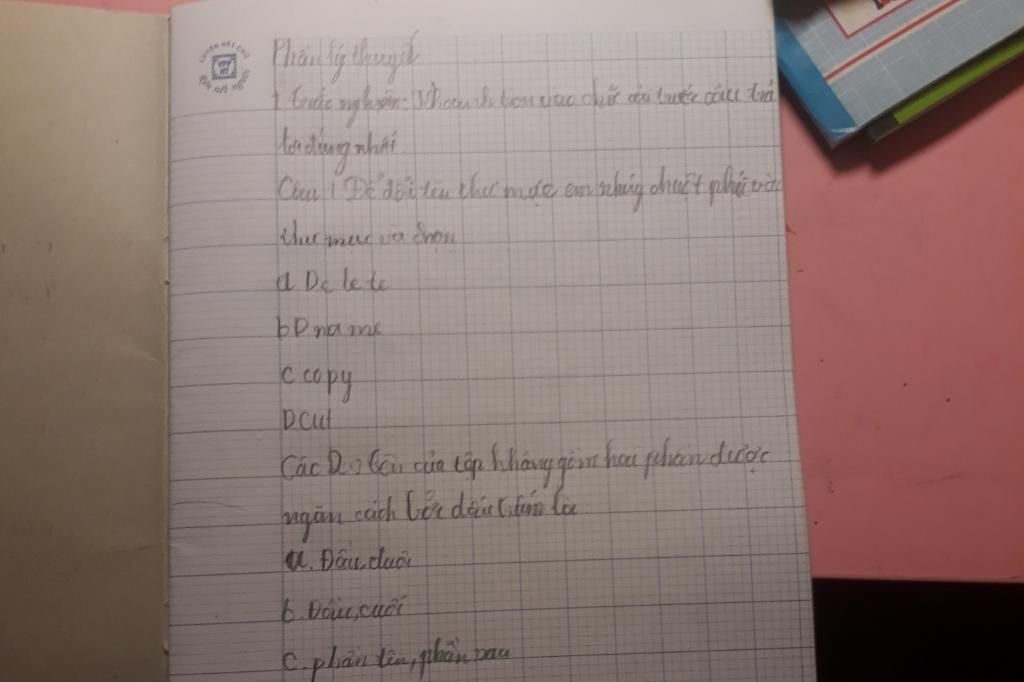 Phần lý thuyết
1 trắc nghiệm: Khoanh tròn vào chữ cái trước câu trả
lời đúng nhất
Câu 1 Để đổi tên thư mục em nháy chuột phải vào
thư mục và chọn
a De le te
b R na me
c copy
D Cut
Các 2: tên của tệp không gồm hai phần được
ngăn cách bởi dấu (.)
a. Đầu, đuôi
b. Đầu, cuối
c. phần tên, phần sau